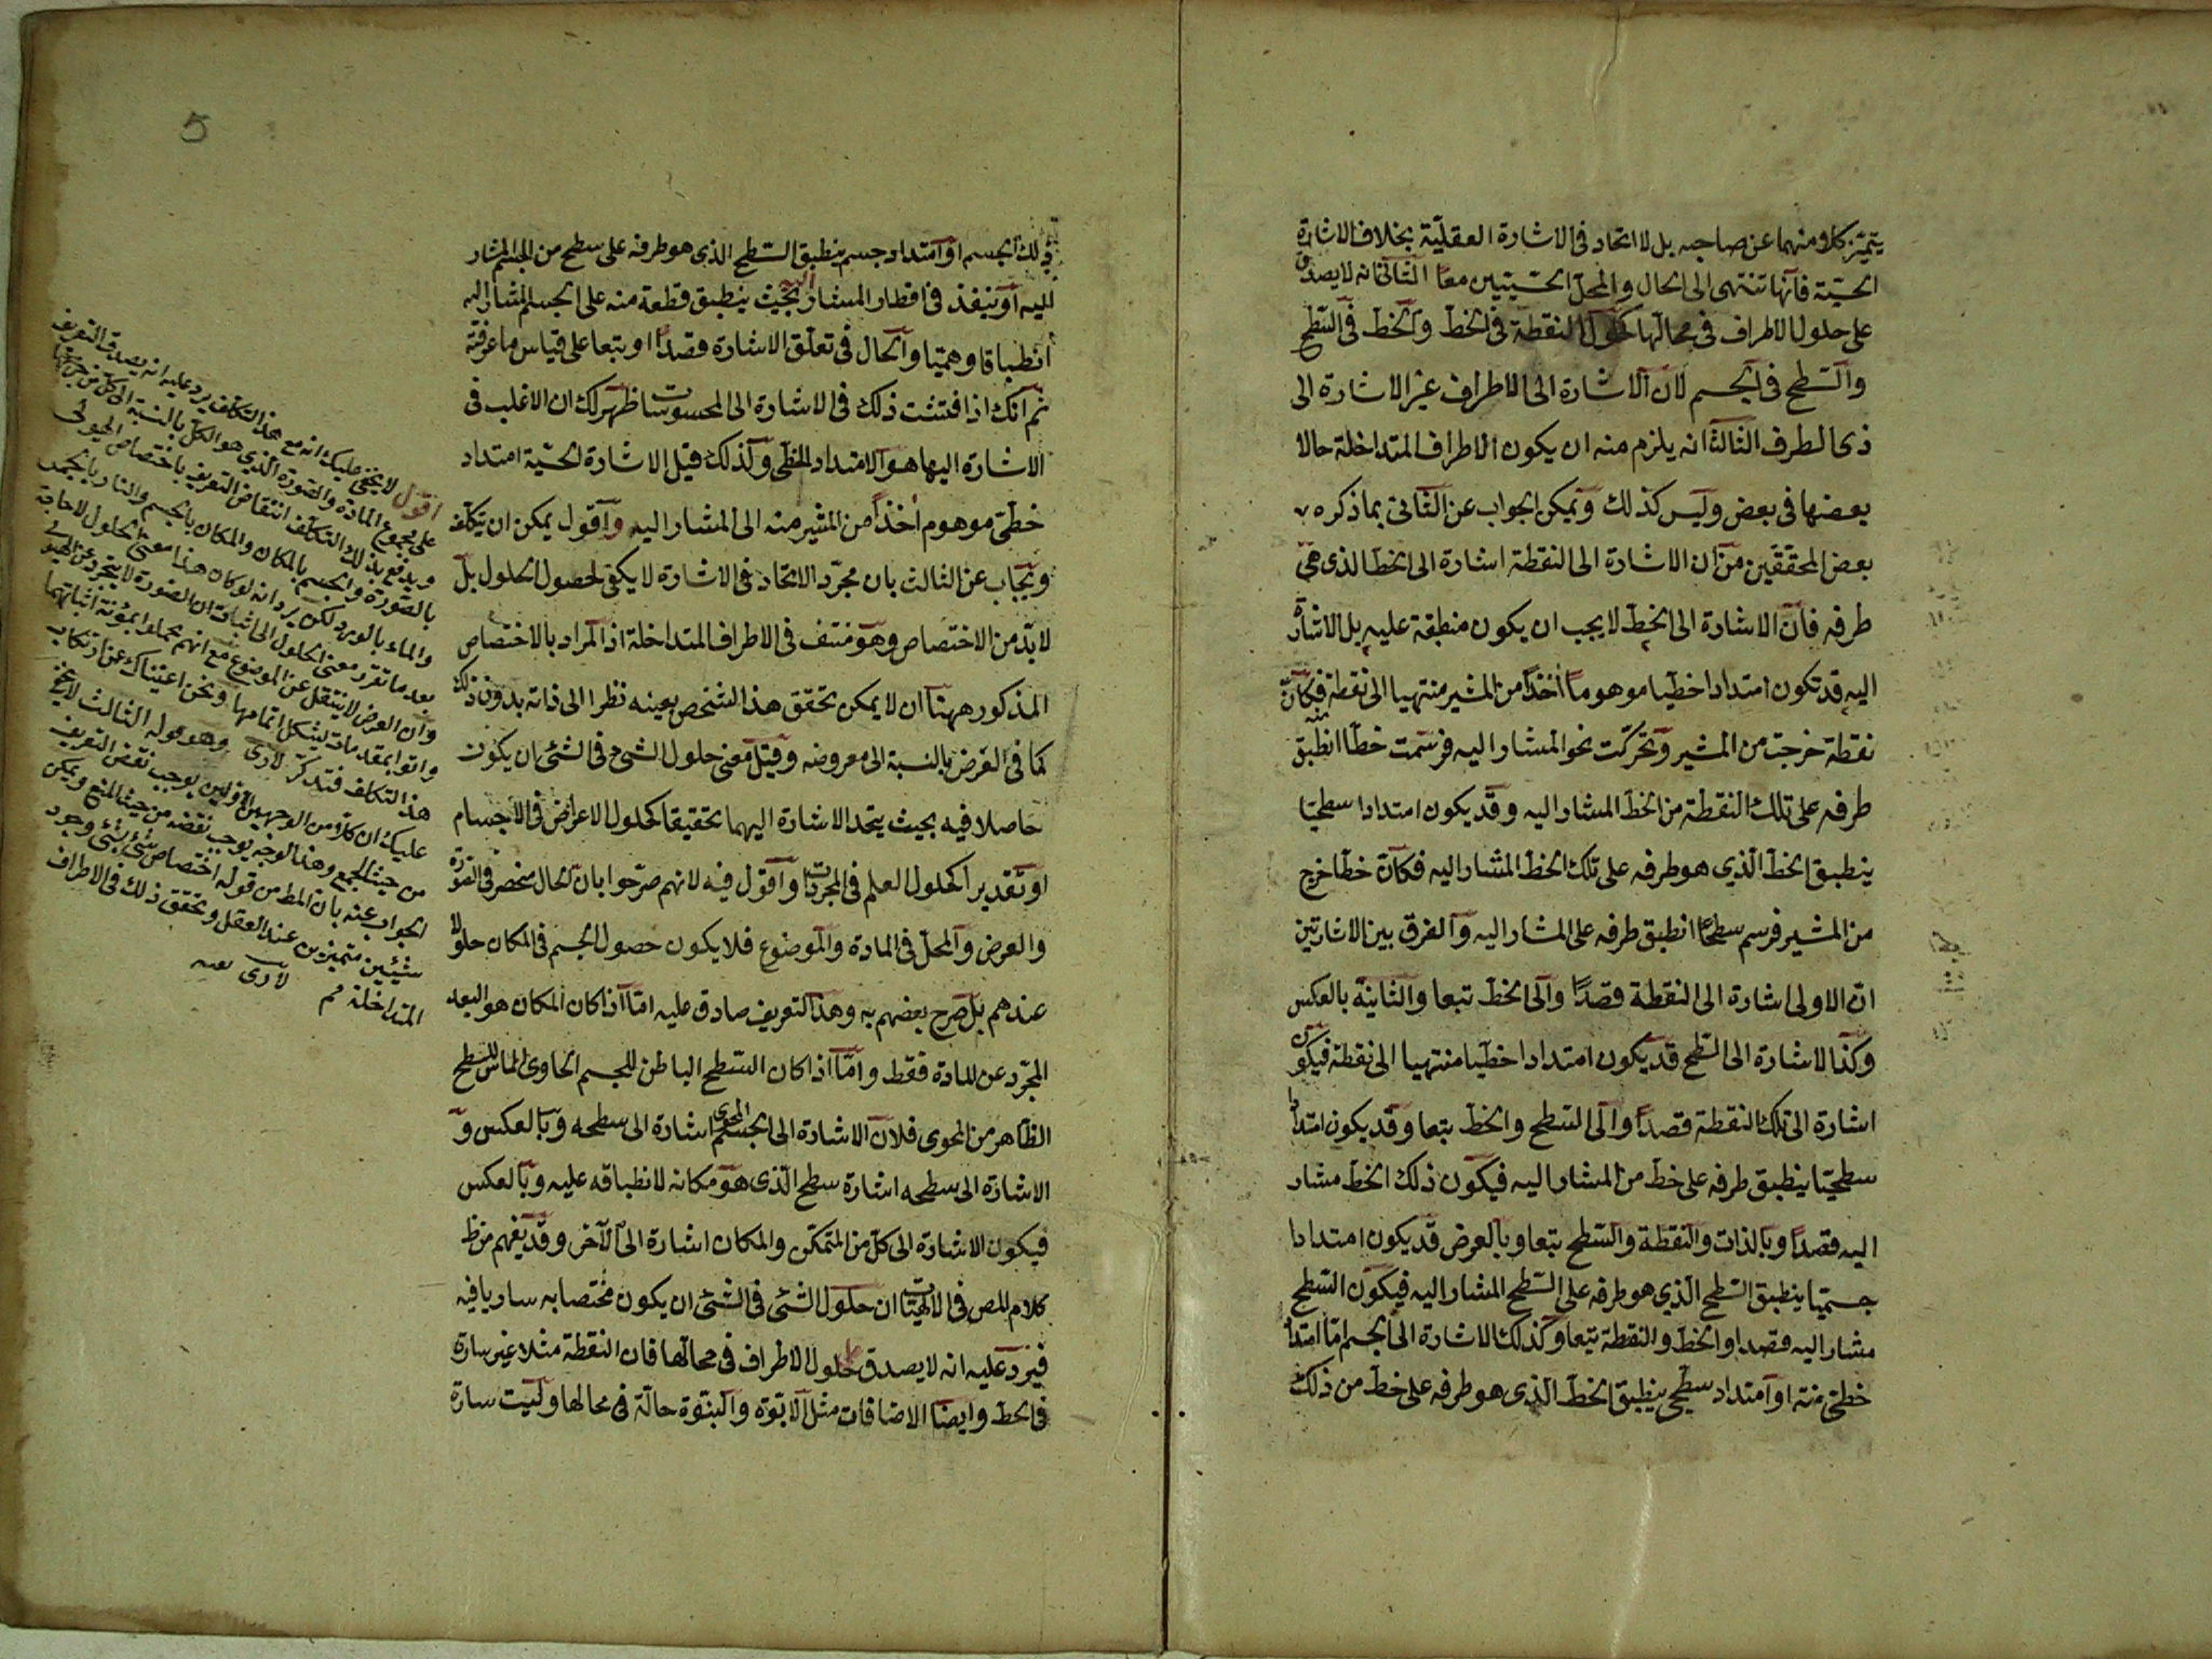 يتميّز كلا منهما عن صاحبه بل لا اتحاد فى الاشارة العقليّة بخلاف الاشارة
الحسّيّة فانّها تنتهى الى الحال والمحلّ الحسّيين معا الثّانى انه لا يصدق
على حلول الاطراف فى محالّها كحلول النقطة فى الخطّ والخطّ فى السّطح
والسّطح فى الجسم لانّ الاشارة الى الاطراف غير الاشارة الى
ذى الطرف الثالث انه يلزم منه ان يكون الاطراف المتداخلة حالا
بعضها فى بعض وليس كذلك ويمكن الجواب عن الثّانى بما ذكره
بعض المحقّقين من ان الاشارة الى النقطة اشارة الى الخطّ الذى هى
طرفه فانّ الاشارة الى الخطّ لا يجب ان يكون منطبقة عليه بل الاشارة
اليه قد تكون امتدادا خطّيا موهوما اخذا من المشير منتهيا الى نقطة منه فكأنّ
نقطة خرجت من المشير وتحرّكت نحو المشار اليه فرسمت خطّا انطبق
طرفه على تلك النقطة من الخطّ المشار اليه وقد يكون امتدادا سطحيّا
ينطبق الخطّ الّذي هو طرفه على تلك الخطّ المشار اليه فكانّ خطّا خرج
من المشير فرسم سطحا انطبق طرفه على المشار اليه والفرق بين الاشارتين
انّ الاولى اشارة الى النقطة قصدًا والى الخطّ تبعا والثّانية بالعكس
وكذا الاشارة الى السّطح قد يكون امتدادا خطّيا منتهيا الى نقطة فيكون
اشارة الى تلك النقطة قصدًا والى السّطح والخطّ تبعا وقد يكون امتدادا
سطحيّا ينطبق طرفه على خطّ من المشار اليه فيكون ذلك الخطّ مشار
اليه قصدًا وبالذات والنقطة والسّطح تبعا وبالعرض قد يكون امتدادا
جسميّا ينطبق السّطح الّذي هو طرفه على السّطح المشار اليه فيكون السّطح
مشار اليه قصدا والخطّ والنقطة تبعا وكذلك الاشارة الى الجسم امّا امتداد
خطّى منه او امتداد سطحى ينطبق الخطّ الّذى هو طرفه على خطّ من ذلك
ذلك الجسم او امتداد جسم ينطبق السّطح الذى هو طرفه على سطح من الجسم المشار
اليه او ينفذ فى اقطار المشار اليه بحيث ينطبق قطعة منه على الجسم المشار اليه
انطباقا وهميّا والحال فى تعلّق الاشارة قصدًا او تبعا على قياس ما عرفته
ثم انّك اذا فتشت ذلك فى الاشارة الى المحسوسات ظهر لك ان الاغلب فى
الاشارة اليها هو الامتداد الخطّى ولذلك قيل الاشارة الحسّيّة امتداد
خطّى موهوم اخذًا من المشير منه الى المشار اليه واقول يمكن ان يتكلّف
ويجاب عن الثالث بان مجرّد الاتحاد فى الاشارة لا يكفى لحصول الحلول بل
لا بدّ من الاختصاص وهو منتف فى الاطراف المتداخلة اذ المراد بالاختصاص
المذكور ههنا ان لا يمكن تحقق هذا الشخص بعينه نظرا الى ذاته بدون ذلك
كما فى العرض بالنسبة الى معروضه وقيل معنى حلول الشىء فى الشئ ان يكون
حاصلا فيه بحيث يتحد الاشارة اليهما تحقيقا كحلول الاعراض فى الاجسام
او تقديرا كحلول العلم فى المجردات واقول فيه لانهم صرّحوا بان الحال منحصر فى الصّورة
والعرض والمحلّ فى المادة والموضوع فلا يكون حصول الجسم فى المكان حلولا
عندهم بل صرح بعضهم به وهذا التعريف صادق عليه امّا اذا كان المكان هو البعد
المجرّد عن المادة فقط وامّا اذا كان السّطح الباطن للجسم الحاوى المماس للسّطح
الظاهر من المحوى فلان الاشارة الى الجسم المحوى اشارة الى سطحه وبالعكس و
الاشارة الى سطحه اشارة سطح الّذى هو مكانه لانطباقه عليه وبالعكس
فيكون الاشارة الى كلّ من المتمكن والمكان اشارة الى الآخر وقد يفهم من ظ
كلام المص فى الالهيّات ان حلول الشّئ فى الشئ ان يكون مختصا به ساريا فيه
فيرد عليه انه لا يصدق على حلول الاطراف فى محالّها فان النقطة مثلا غير سارة
فى الخط وايضا الاضافات مثل الابوّة والبنوّة حالّة فى محالها وليست سارة
اقول لا يخفى عليك انه مع هذا التكلّف يرد عليه انه يصدق التعريف
على مجموع المادة والصورة الذى هو الكل بالنسبة الى كل من جزئيها
ويدفع بذلك التكلف انتقاض التعريف باختصاص الهيولى
بالصّورة والجسم بالمكان والمكان بالجسم والنار بالجمر
والماء بالورد لكن يرد انه لو كان هذا معنى الحلول لا حاجة
بعد ما تقرر معنى الحلول الى اثبات ان الصورة لا يتجرد عن الهيولى
وان العرض لا ينتقل عن الموضوع مع انهم تحملوا بمؤنة اثباتهما
واتوا بمقدمات يشكل اتمامها ونحن اعنيناك عن ارتكاب
هذا التكلف فتذكّر لارى وهو قوله الثالث لا يخفى
عليك ان كلا من الوجهين الاولين يوجب نقض التعريف
من حيث الجمع وهذا الوجه يوجب نقضه من حيث المنع ويمكن
الجواب عنه بان المط من قوله اختصاص شئ بشئ وجود
شيئين متميزين عند العقل وتحقق ذلك فى الاطراف
المتداخلة مم لارى
5